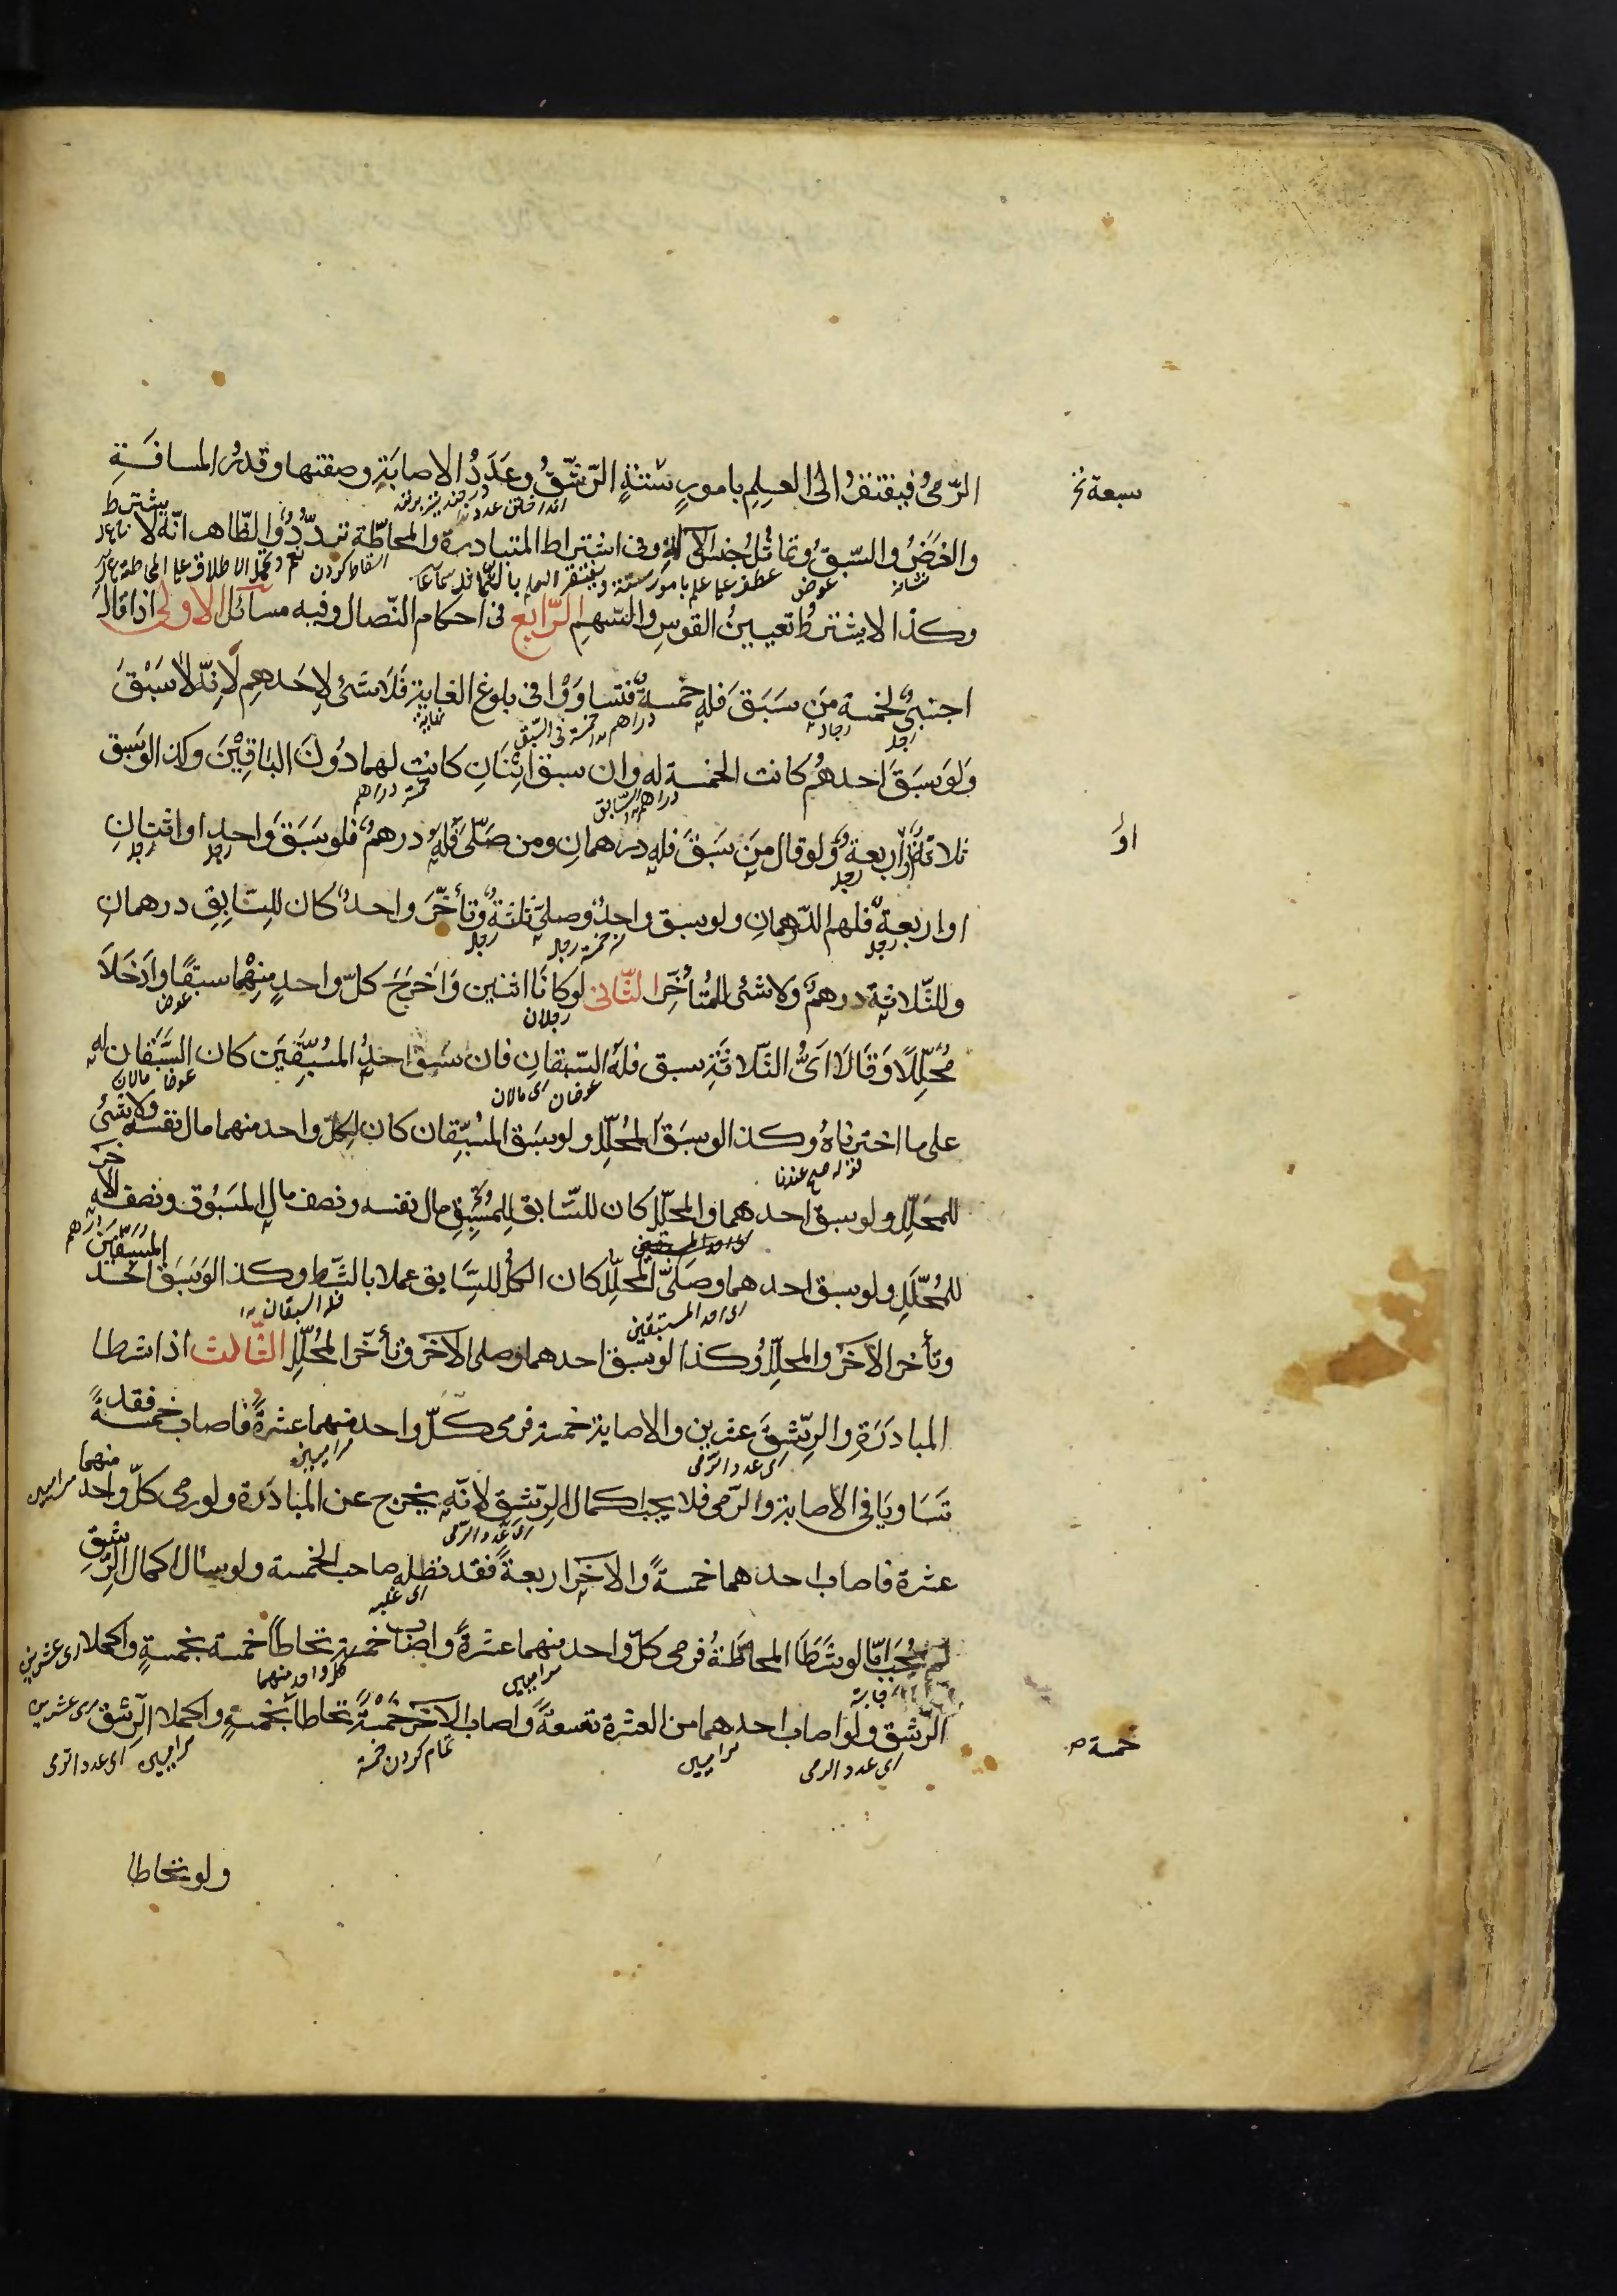 الرّمىُ فيفتقرُ الى العِلمِ بامورٍ ستّةٍ الرّشقُ وعَدَدُ الاصابَةِ وصفتها وقدرُ المسافَةِ
سبعة خ
والغَرَضُ والسّبقُ وتماثُلُ جنس الآلةِ وفى اشتراط المبادرة والمحاطّة تردّدٌ والظّاهر انّه لا يشترط
نشانه
عوض
وكذا لا يشترطُ تعيينُ القوسِ والسّهمِ الرّابع فى احكام النّضال وفيه مسآئل الاولى اذا قال
اجنبىٌّ لخمسة مَن سَبَقَ فله خمسةٌ فتساوَوْا فى بلوغ الغاية فَلَا شئ لِاحَدهِم لأنّه لا سَبْقَ
ولَو سَبَقَ احدهُم كانت الخمسة له وان سبق اثْنَانِ كانت لهما دُونَ البَاقِيْنَ وكذا لو سَبق
ثلاثةٌ او اربعةٌ ولو قال مَن سَبَقَ فله درهمانِ ومن صَلّى فَلَهُ درهمٌ فلو سَبَقَ واحد او اثنانِ
اوْ
او اربعةٌ فلهم الدّرهمانِ ولو سبق واحِدٌ وصلى ثلثةٌ وتأخّرَ واحدٌ كان للسّابِقِ درهمانِ
وللثّلاثة درهمٌ وَلا شئ للمُتأخّرِ الثّانى لو كانَا اثنين وَاَخْرَجَ كلّ واحدٍ مِنهْما سبقًا وادَخَلَا
رجلان
عوض
مُحَلِّلًا وَقَالَا اَىُّ الثّلاثَةِ سبق فلهُ السّبقانِ فان سَبَقَ احدُ المُسْتَبِقَيْنِ كان السَّبَقان له
على ما اخترناهُ وكذا لو سَبَقَ المُحلِّل ولو سَبَق المُستبِقان كان لكلّ واحد منهما مال نفسه ولا شئَ
للمحَلِّلِ ولو سبق احدهما والمحلّل كان للسّابق المُسْتَبِقِ مال نفسه ونصف مال المسَبُوق ونصف الآخر
للمُحلّلِ ولو سبق احدهما وصَلّى المُحلِّل كان الكُلُّ للسّابق عملا بالشّرط وكذا لو سَبَق احد المستبقين
وتأخر الآخرُ والمحلِّل وكذا لو سبق احدهما وصلى الآخر وتأخّر المُحلِّل الثّالث اذا شرطا
اى احد المستبقين
المبادَرَةِ والرّشقَ عشرين والاصابة خمسة فرمى كلّ واحد منهما عشرةً فاصاب خمسةً فقد
اى عدد الرّمى
تَسَاويَا فى الاصابة والرّمى فلا يجب اكمال الرّشقِ لانّه يخرج عن المبادَرة ولو رمى كلّ واحد منهما
اى عدد الرّمى
عشرة فاصاب احدهما خمسةً والآخر اربعةً فقد نضله صاحب الخمسة ولو سأل اكمال الرّشقِ
اى غلبه
لم يجب امّا لو شَرَطَا المحاطّةُ فرمى كلّ واحد منهما عشرةً واصاب خمسة تحاطّا خمسة بخمسةٍ واكملا
الرّشق ولو اصاب احدهما من العشرة تسعةً واصاب الآخر خمسةً تحاطا بخمسةٍ واكملا الرّشقَ
خمسة
اى عدد الرمى
تمام كردن
اى عدد الرّمى
ولو تحاطا